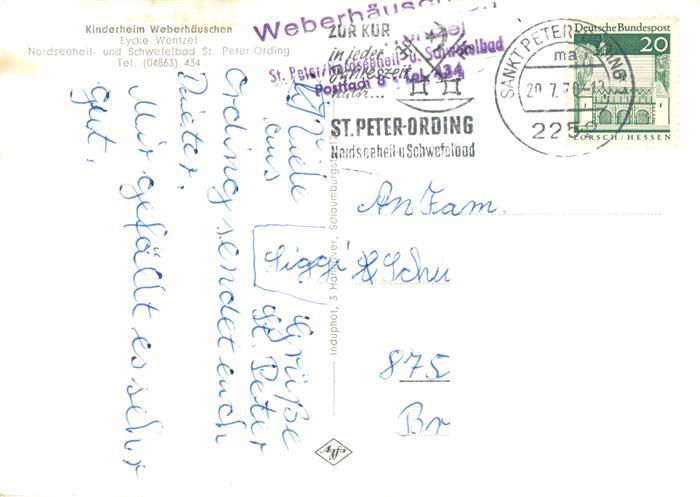 Kinderheim Weberhäuschen
Eycke Wentzel
Nordseeheil- und Schwefelbad St. Peter-Ording
Tel. (04863) 434
Viele Grüße
aus St. Peter
Ording sendet euch
Dieter.
Mir gefällt es sehr
gut.
Siggi
Weberhäuschen
St. Peter, Nordseeheil- u. Schwefelbad
Postfach 8 · Tel. 434
ZUR KUR
in jeder
Jahreszeit
ST. PETER-ORDING
Nordseeheil-u Schwefelbad
SANKT PETER-ORDING
20.7.70-12
2252
Deutsche Bundespost
20
LORSCH/HESSEN
An Fam.
& Schu
875
Br
Induphot, 3 Hannover, Schaumburgstr.
Agfa